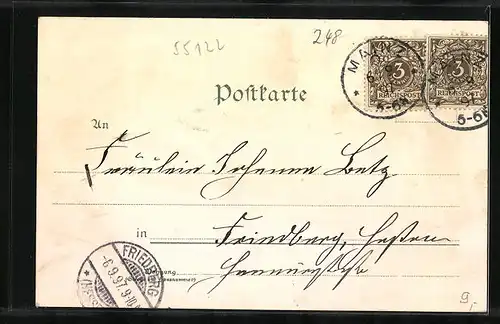 55122
248
MAINZ
3 3
REICHSPOST REICHSPOST
5-6N 5-6N
Postkarte
An
Fräulein Johanna Betz
in
Friedberg, Hessen
FRIEDBERG
-6.9.97.9-10
9,-